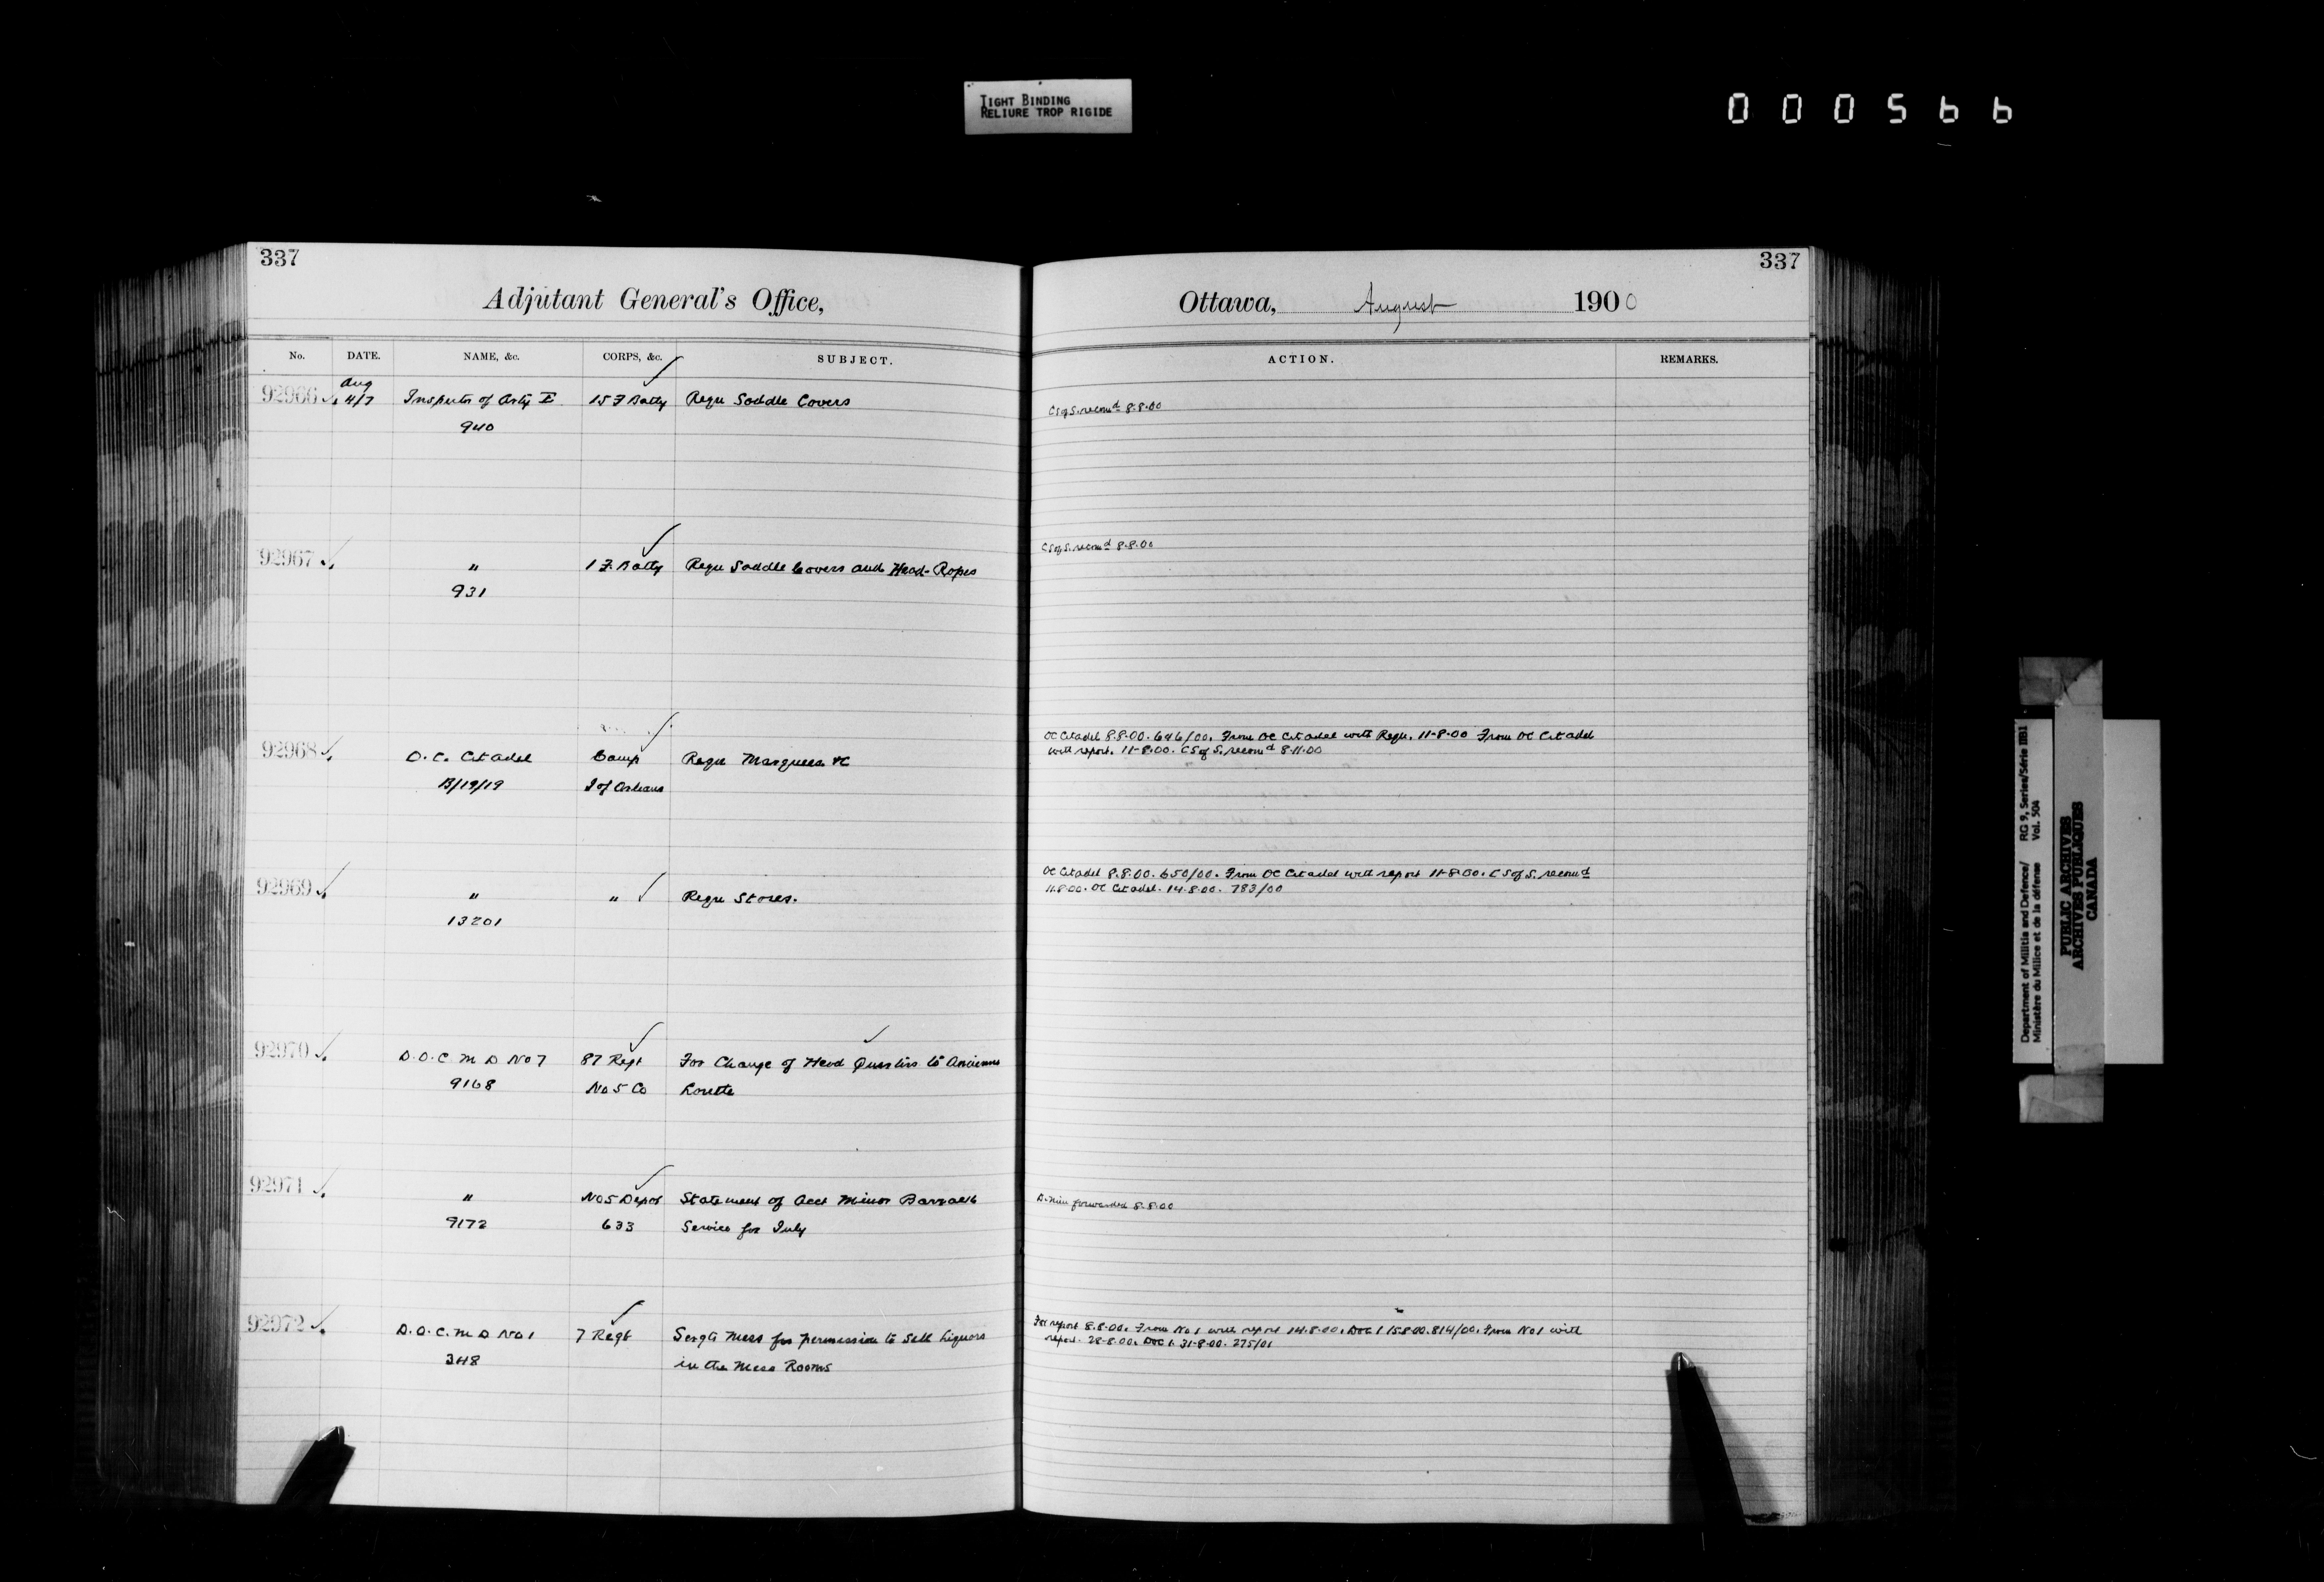 TIGHT BINDING
RELIURE TROP RIGIDE
000566
337
Adjutant General's Office,
No. DATE. NAME, &c. CORPS, &c. SUBJECT.
Aug
92966 4/7 Inspector of Arty E 15 F Batty Requ Saddle Covers
940
92967 " 1 F. Batty Requ Saddle Covers and Head-Ropes
931
92968 O.C. Citadel Camp Requ Marquees &c
B/19/19 I of Orleans
92969 " " Requ Stores.
13201
92970 D.O.C. M D No 7 87 Regt For Change of Head Quarters to Ancienne
9168 No 5 Co Lorette
92971 " No 5 Depot Statement of Acct Minor Barrack
9172 633 Service for July
92972 D.O.C. M D No 1 7 Regt Sergts Mess for permission to Sell Liquors
348 in the Mess Rooms
337
Ottawa, August 1900
ACTION. REMARKS.
C S of S. recomd 8.8.00
C S of S. recomd 8.8.00
OC Citadel 8.8.00. 646/00. From OC Citadel with Requ. 11-8-00 From OC Citadel
with report. 11-8.00. C S of S. recomd 8.11.00
OC Citadel 8.8.00. 650/00. From OC Citadel with report 11-8-00. C S of S. recomd
11.8.00. OC Citadel. 14.8.00. 783/00
forwarded 8.8.00
For report 8.8.00. From No 1 with report 14.8.00. DOC 1 15.8.00. 814/00. From No 1 with
report. 28-8.00. DOC 1. 31-8-00. 275/01
Department of Militia and Defence/ RG 9, Series/Série IIB1
Ministère du Milice et de la défense Vol. 504
PUBLIC ARCHIVES
ARCHIVES PUBLIQUES
CANADA